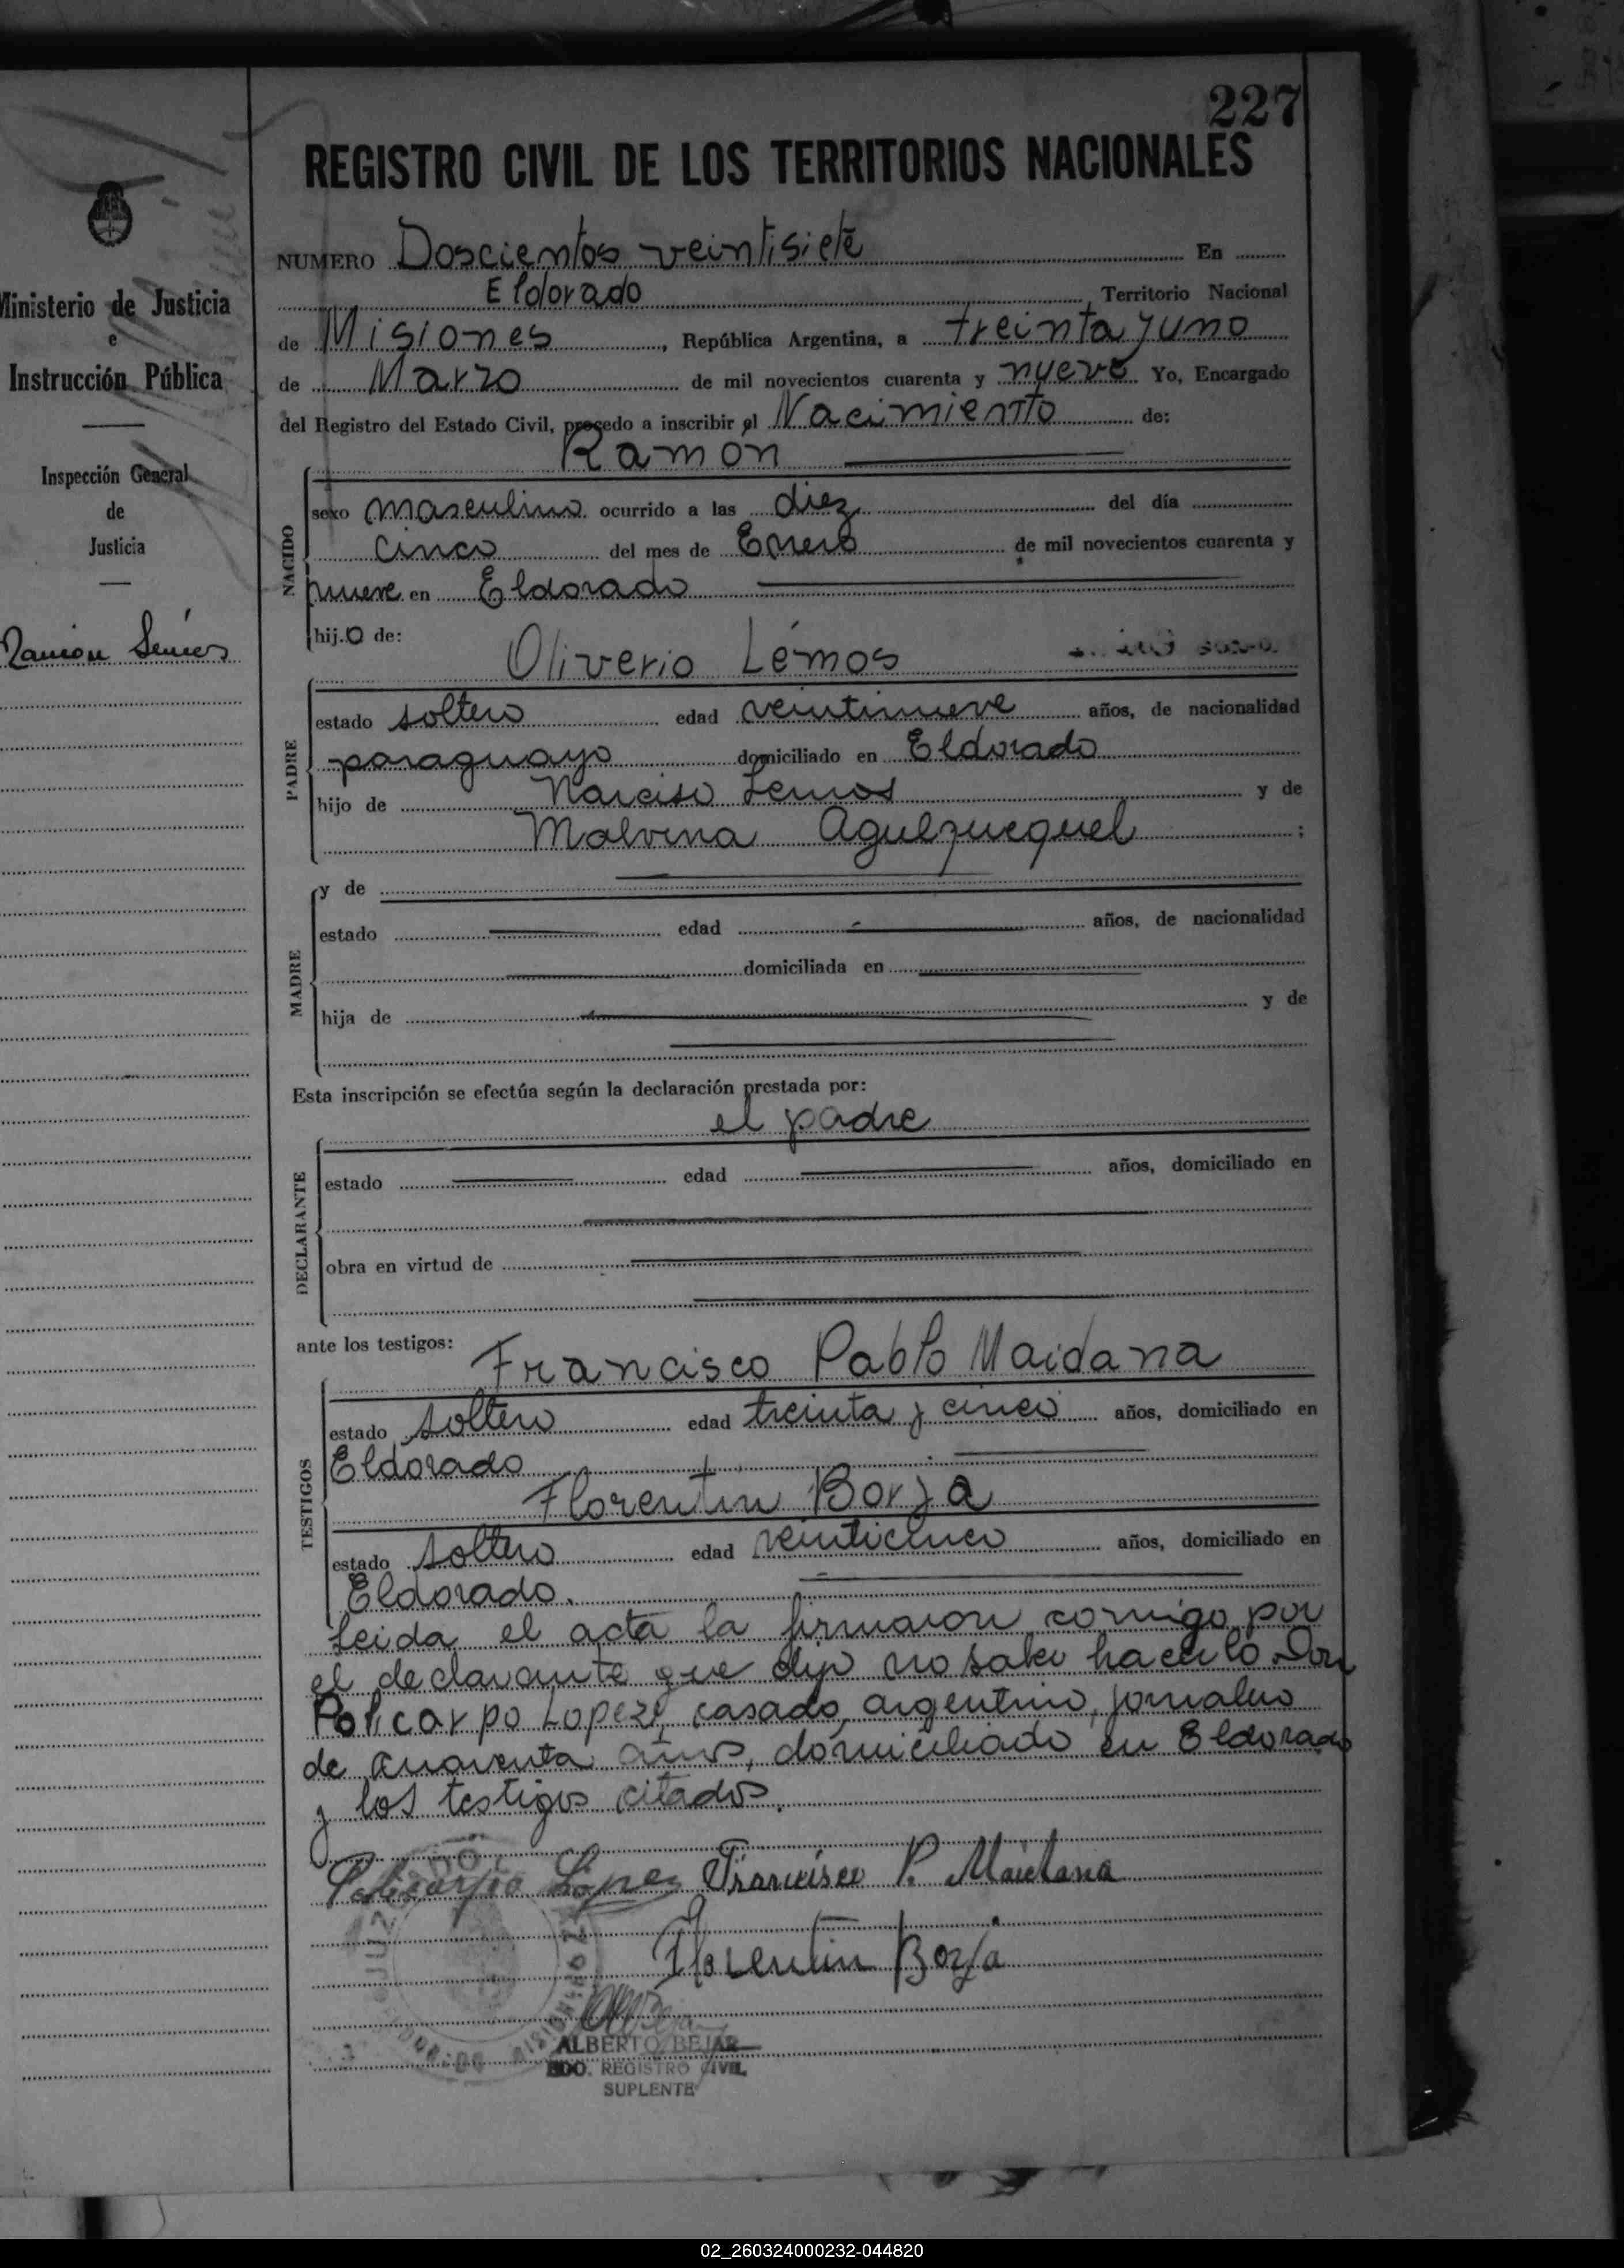 227
REGISTRO CIVIL DE LOS TERRITORIOS NACIONALES
Ministerio de Justicia
e
Instrucción Pública
Inspección General
de
Justicia
Ramon Lemos
NUMERO Doscientos veintisiete En
Eldorado, Territorio Nacional
de Misiones, República Argentina, a treinta y uno
de Marzo de mil novecientos cuarenta y nueve Yo, Encargado
del Registro del Estado Civil, procedo a inscribir el Nacimiento de:
Ramón
NACIDO
sexo masculino ocurrido a las diez del día
cinco del mes de Enero de mil novecientos cuarenta y
nueve en Eldorado
hij.o de:
Oliverio Lémos
PADRE
estado soltero edad veintinueve años, de nacionalidad
paraguayo domiciliado en Eldorado
hijo de Narciso Lemos y de
Malvina ;
MADRE
y de
estado edad años, de nacionalidad
domiciliada en
hija de y de
Esta inscripción se efectúa según la declaración prestada por:
el padre
DECLARANTE
estado edad años, domiciliado en
obra en virtud de
ante los testigos:
Francisco Pablo Maidana
TESTIGOS
estado soltero edad treinta y cinco años, domiciliado en
Eldorado
Florentin Borja
estado soltero edad veinticinco años, domiciliado en
Eldorado.
Leida el acta la firmaron conmigo por
el declarante que dijo no saber hacerlo Don
Policarpo Lopez, casado, argentino, jornalero
de cuarenta años, domiciliado en Eldorado
y los testigos citados.
Policarpio Lopez Francisco P. Maidana
Florentin Borja
ALBERTO BEJAR
EDO. REGISTRO CIVIL
SUPLENTE
02_260324000232-044820